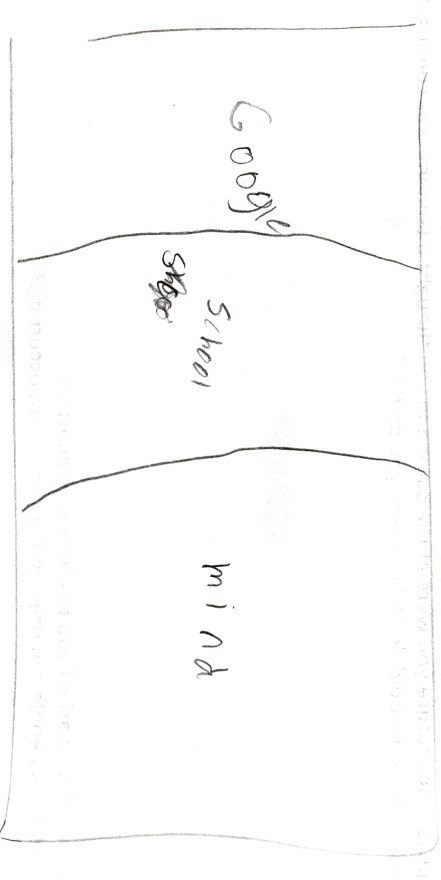 Google
School
mind